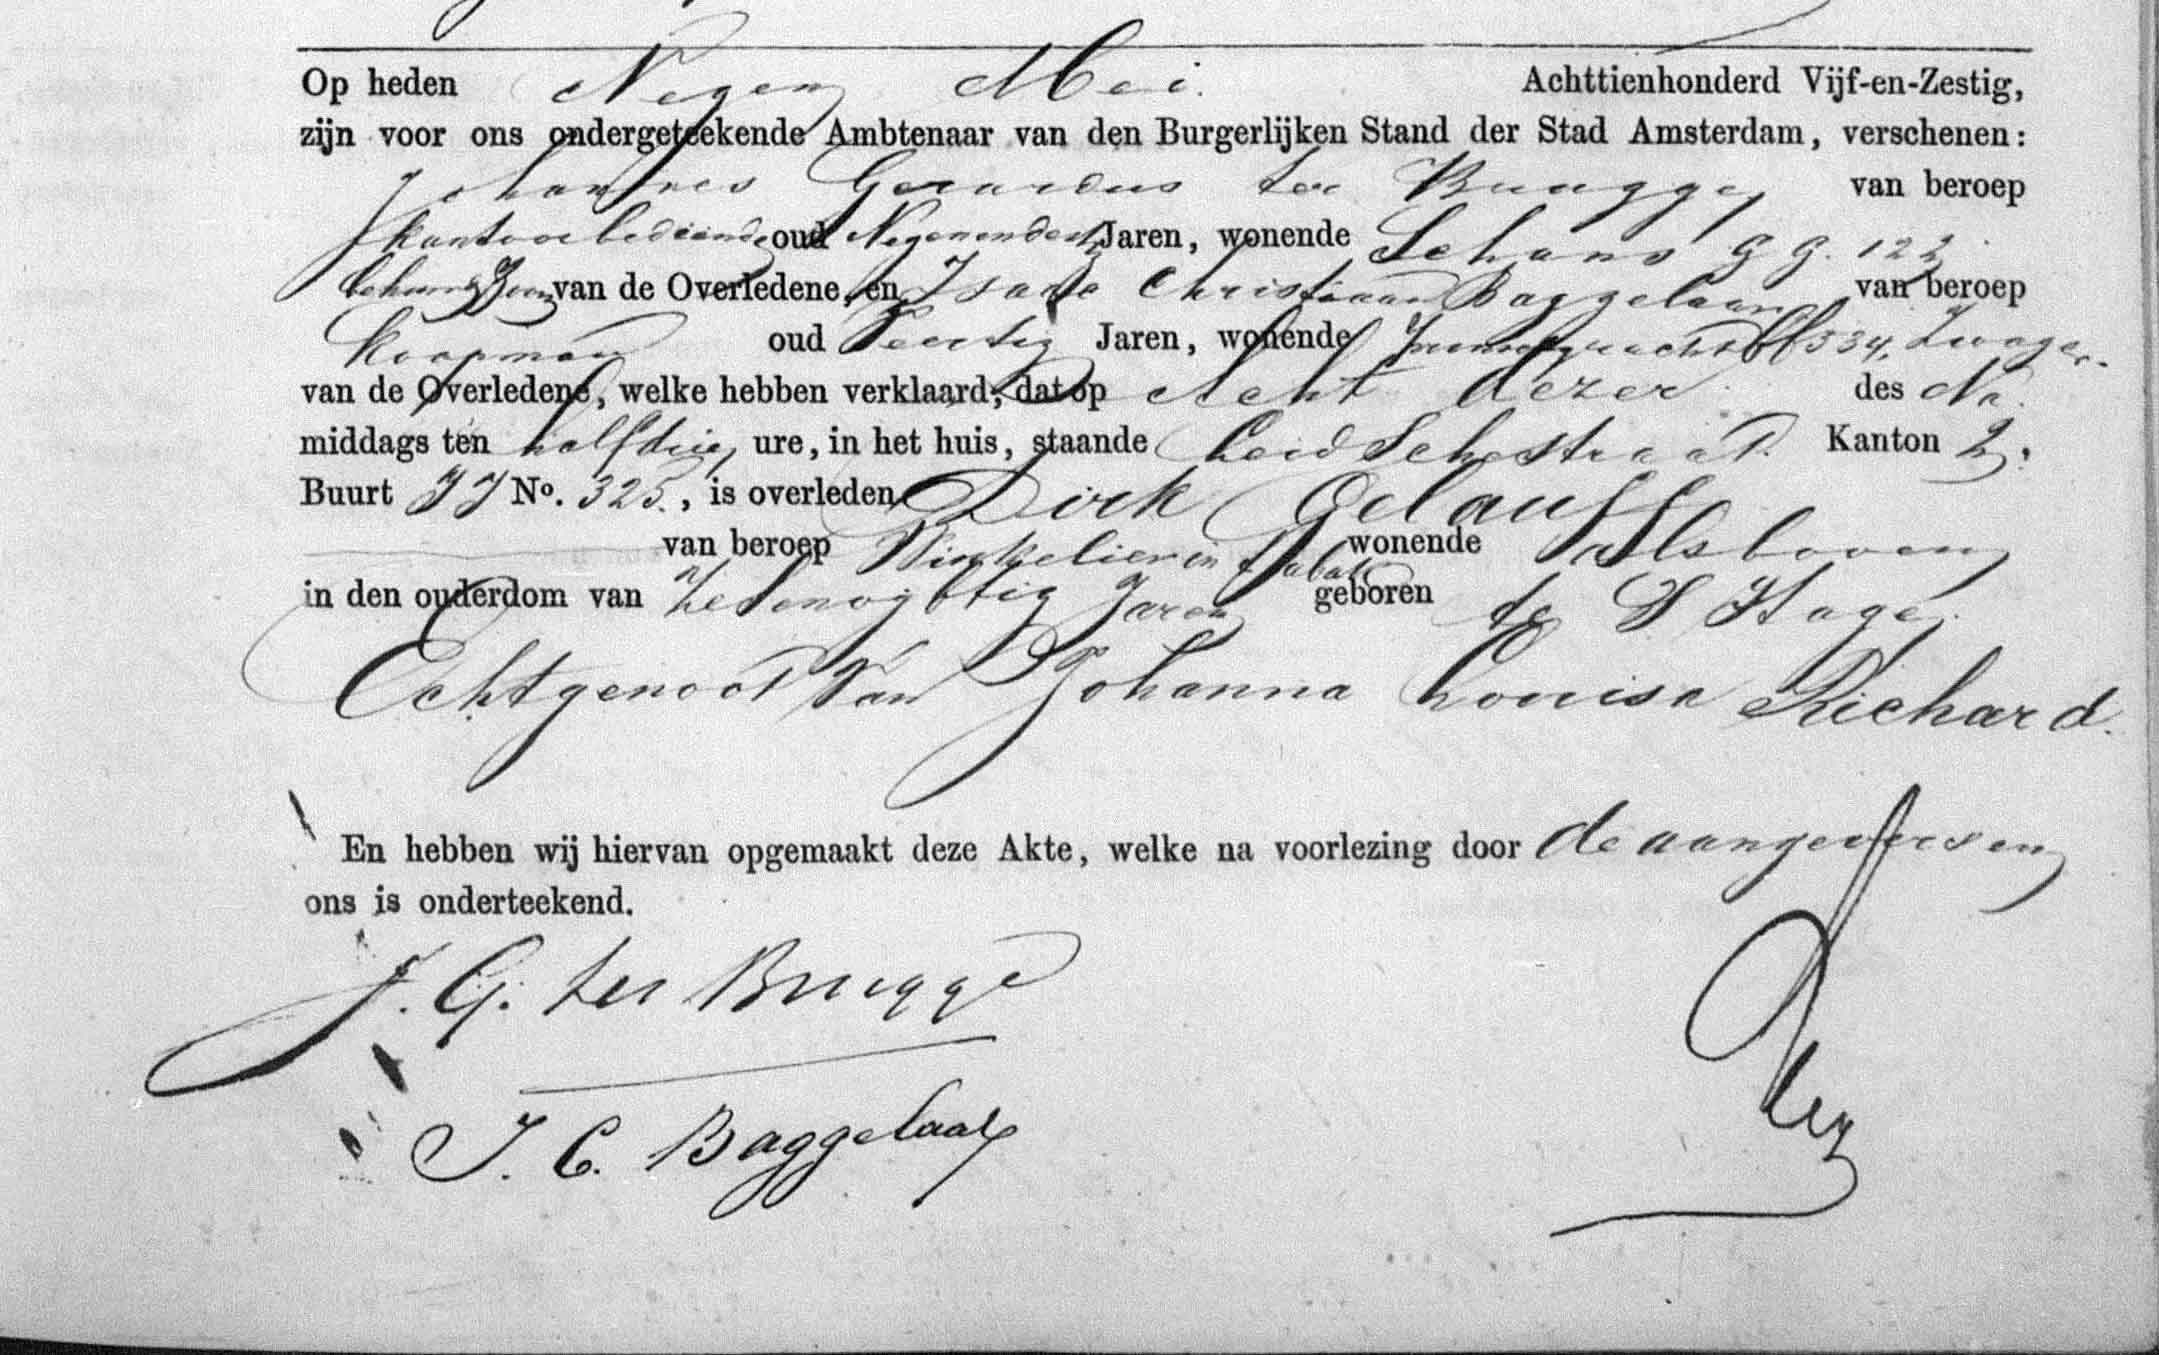 Op heden Negen Mei. Achttienhonderd Vijf-en-Zestig,
zijn voor ons ondergeteekende Ambtenaar van den Burgerlijken Stand der Stad Amsterdam, verschenen:
Johannes Gerardus ter Brugge van beroep
kantoorbediende oud Negenendertig Jaren, wonende Schans GG. 122
behuwdzoon van de Overledene, en Isaac Christiaan Baggelaar van beroep
Koopman oud Veertig Jaren, wonende 334, Zwager
van de Overledene, welke hebben verklaard, dat op Acht dezer des Na
middags ten half drie, ure, in het huis, staande Leidschestraat. Kanton 2,
Buurt JJ No. 325., is overleden Dirk Gelauff
van beroep Winkelier in tabak wonende als boven
in den ouderdom van Jaren geboren te S Hage.
Echtgenoot van Johanna Louisa Richard.
En hebben wij hiervan opgemaakt deze Akte, welke na voorlezing door de aangevers en
ons is onderteekend.
J. G. ter Brugge
J. C. Baggelaar